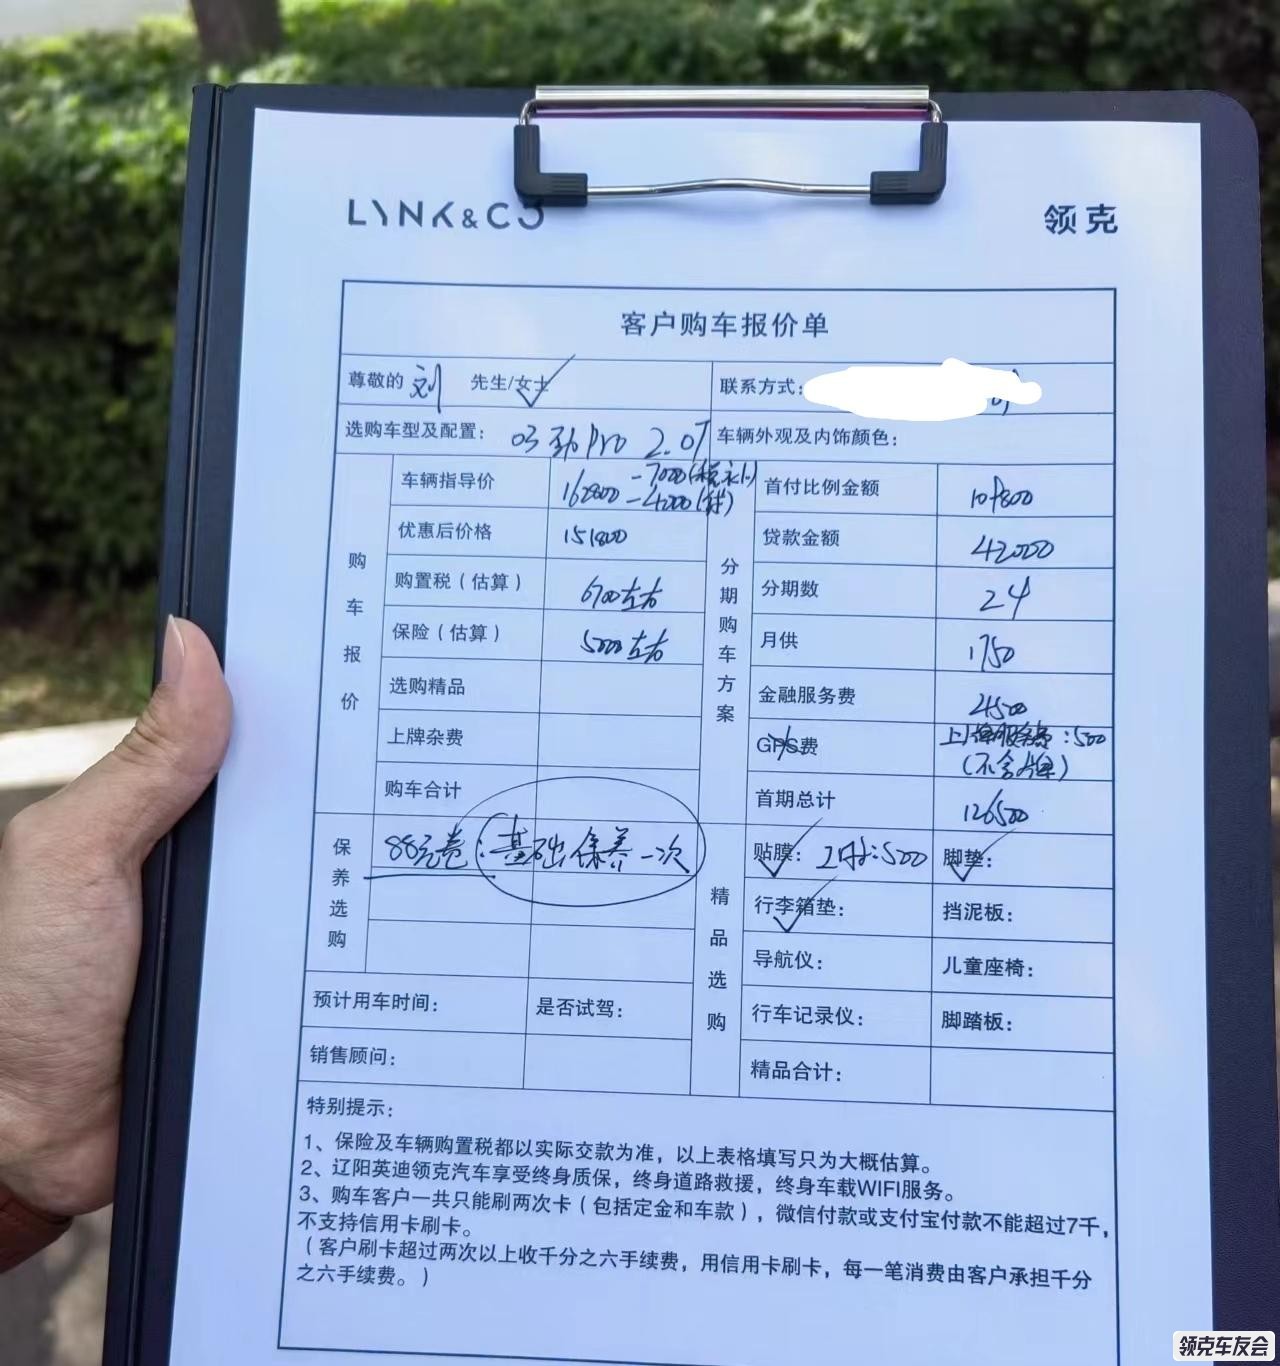 LYNK&CO 领克
客户购车报价单
尊敬的 刘 先生/女士 联系方式:
选购车型及配置: 03劲Pro 2.0T 车辆外观及内饰颜色:
购车报价
车辆指导价 162800 -7000 -4000
优惠后价格 151800
购置税(估算) 6700左右
保险(估算) 5000左右
选购精品
上牌杂费
购车合计
分期购车方案
首付比例金额 109800
贷款金额 42000
分期数 24
月供 1750
金融服务费 4500
GPS费 上牌服务费:500
(不含牌)
首期总计 126500
保养选购
88元卷:基础保养一次
精品选购
贴膜: 工时:500 脚垫:
行李箱垫: 挡泥板:
导航仪: 儿童座椅:
行车记录仪: 脚踏板:
精品合计:
预计用车时间: 是否试驾:
销售顾问:
特别提示:
1、保险及车辆购置税都以实际交款为准，以上表格填写只为大概估算。
2、辽阳英迪领克汽车享受终身质保，终身道路救援，终身车载WIFI服务。
3、购车客户一共只能刷两次卡（包括定金和车款），微信付款或支付宝付款不能超过7千，
不支持信用卡刷卡。
（客户刷卡超过两次以上收千分之六手续费，用信用卡刷卡，每一笔消费由客户承担千分
之六手续费。）
领克车友会